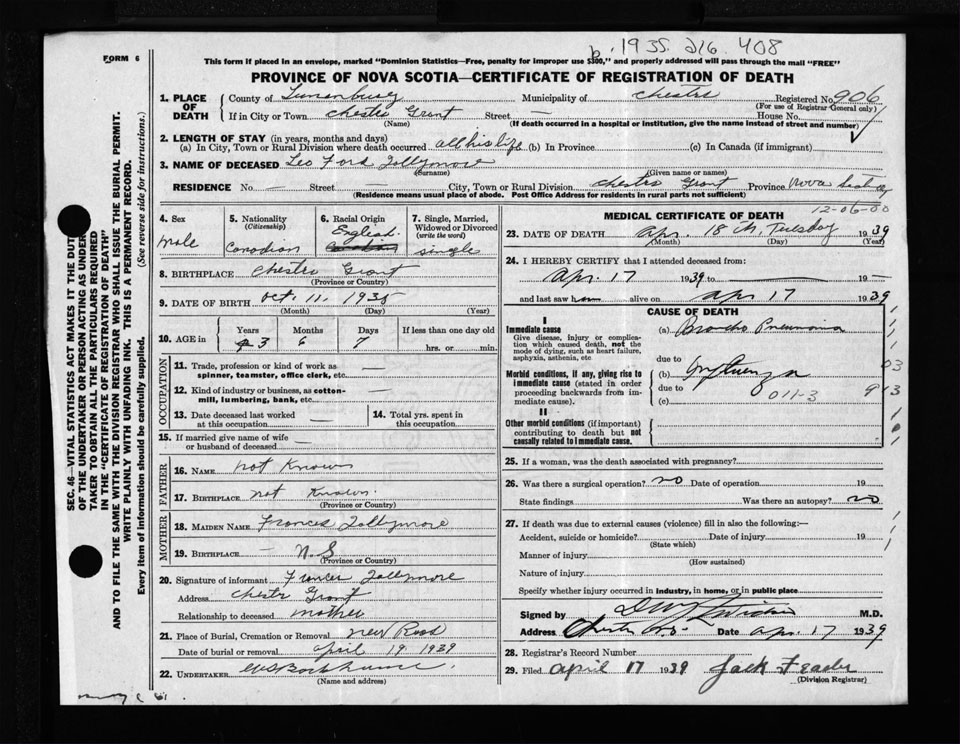 1935 216 408
FORM 6
This form if placed in an envelope, marked "Dominion Statistics—Free, penalty for improper use $300," and properly addressed will pass through the mail "FREE"
PROVINCE OF NOVA SCOTIA—CERTIFICATE OF REGISTRATION OF DEATH
SEC. 46—VITAL STATISTICS ACT MAKES IT THE DUTY
OF THE UNDERTAKER OR PERSON ACTING AS UNDER-
TAKER TO OBTAIN ALL THE PARTICULARS REQUIRED
IN THE "CERTIFICATE OF REGISTRATION OF DEATH"
AND TO FILE THE SAME WITH THE DIVISION REGISTRAR WHO SHALL ISSUE THE BURIAL PERMIT.
WRITE PLAINLY WITH UNFADING INK. THIS IS A PERMANENT RECORD.
Every item of information should be carefully supplied. (See reverse side for instructions.)
1. PLACE OF DEATH
County of Lunenburg Municipality of Chester Registered No. 906
(For use of Registrar General only)
If in City or Town Chester Grant Street — House No.
(Name) (If death occurred in a hospital or institution, give the name instead of street and number)
2. LENGTH OF STAY (in years, months and days)
(a) In City, Town or Rural Division where death occurred all his life (b) In Province (c) In Canada (if immigrant)
3. NAME OF DECEASED Leo Ford Jollymore
(Surname) (Given name or names)
RESIDENCE No. — Street — City, Town or Rural Division Chester Grant Province Nova Scotia
(Residence means usual place of abode. Post Office Address for residents in rural parts not sufficient)
4. Sex
male
5. Nationality
(Citizenship)
Canadian
6. Racial Origin
English
7. Single, Married,
Widowed or Divorced
(write the word)
single
8. BIRTHPLACE Chester Grant
(Province or Country)
9. DATE OF BIRTH Oct. 11, 1935
(Month) (Day) (Year)
10. AGE in
Years Months Days If less than one day old
3 6 7 hrs. or min.
OCCUPATION
11. Trade, profession or kind of work as
spinner, teamster, office clerk, etc. —
12. Kind of industry or business, as cotton-
mill, lumbering, bank, etc. —
13. Date deceased last worked
at this occupation
14. Total yrs. spent in
this occupation
15. If married give name of wife
or husband of deceased —
FATHER
16. NAME Not Known
17. BIRTHPLACE Not Known
(Province or Country)
MOTHER
18. MAIDEN NAME Frances Jollymore
19. BIRTHPLACE — N.S
(Province or Country)
20. Signature of informant Frances Jollymore
Address Chester Grant
Relationship to deceased mother
21. Place of Burial, Cremation or Removal New Road
Date of burial or removal April 19 1939
22. UNDERTAKER
(Name and address)
MEDICAL CERTIFICATE OF DEATH
12-06-00
23. DATE OF DEATH Apr. 18th, Tuesday 1939
(Month) (Day) (Year)
24. I HEREBY CERTIFY that I attended deceased from:
Apr. 17 1939 to — 19 —
and last saw him alive on Apr 17 1939
CAUSE OF DEATH
I
Immediate cause
Give disease, injury or complica-
tion which caused death, not the
mode of dying, such as heart failure,
asphyxia, asthenia, etc
(a) Broncho Pneumonia
due to
Morbid conditions, if any, giving rise to
immediate cause (stated in order
proceeding backwards from im-
mediate cause).
(b) Influenza
due to
(c)
011-3
II
Other morbid conditions (if important)
contributing to death but not
causally related to immediate cause.
25. If a woman, was the death associated with pregnancy?
26. Was there a surgical operation? no Date of operation 19
State findings Was there an autopsy? no
27. If death was due to external causes (violence) fill in also the following:—
Accident, suicide or homicide? Date of injury 19
(State which)
Manner of injury
(How sustained)
Nature of injury
Specify whether injury occurred in industry, in home, or in public place
Signed by M.D.
Address Chester N.S. Date Apr. 17 1939
28. Registrar's Record Number
29. Filed April 17 1939 Jack Feader
(Division Registrar)